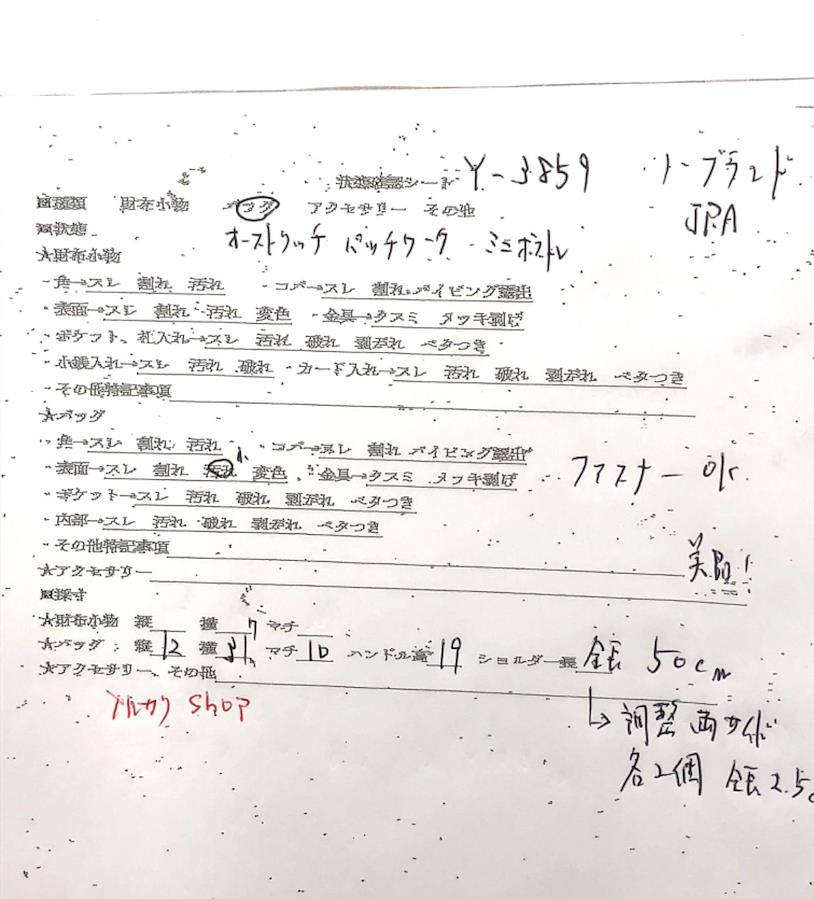 状態確認シート Y-3859 ノーブランド
回種類 財布小物 バッグ アクセサリー その他 JRA
回状態 オーストリッチ パッチワーク ミニボストン
★財布小物
・角→スレ 割れ 汚れ ・コバ→スレ 割れ パイピング露出
・表面→スレ 割れ 汚れ 変色 ・金具→クスミ メッキ剥げ
・ポケット、札入れ→スレ 汚れ 破れ 剥がれ ベタつき
・小銭入れ→スレ 汚れ 破れ ・カード入れ→スレ 汚れ 破れ 剥がれ ベタつき
・その他特記事項
★バッグ
・角→スレ 割れ 汚れ 小 ・コバ→スレ 割れ パイピング露出
・表面→スレ 割れ 汚れ 変色 ・金具→クスミ メッキ剥げ ファスナー ok
・ポケット→スレ 汚れ 破れ 剥がれ ベタつき
・内部→スレ 汚れ 破れ 剥がれ ベタつき
・その他特記事項 美品!
★アクセサリー
回採寸
★財布小物 縦 横 マチ
★バッグ: 縦 12 横 31 マチ 10 ハンドル高 19 ショルダー長 全長 50cm
★アクセサリー、その他
SHOP
↳ 調整 両サイド
各2個 全長 2.5